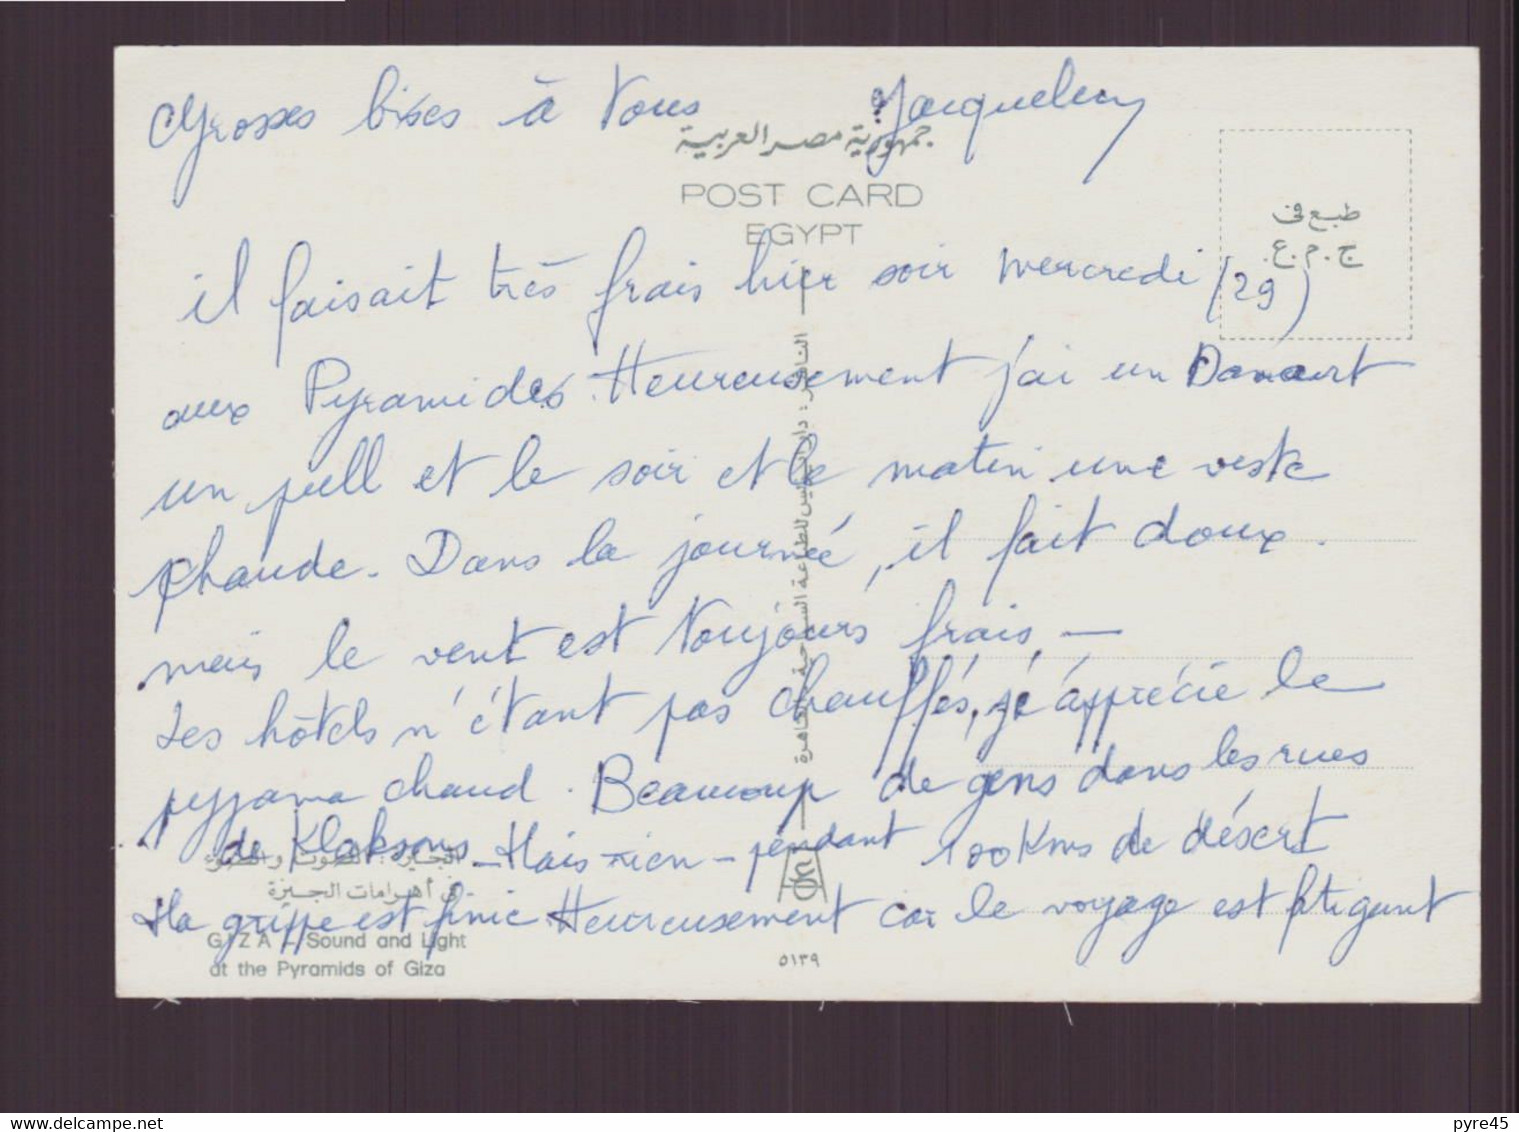 Grosses bises à tous Jacqueline
جمهورية مصر العربية
POST CARD
EGYPT
طبع فى
ج.م.ع.
il faisait très frais hier soir mercredi (29)
aux Pyramides. Heureusement j'ai un Damart
un pull et le soir et le matin une veste
chaude. Dans la journée, il fait doux.
mais le vent est toujours frais. —
Les hôtels n'étant pas chauffés, je apprécie le
pyjama chaud. Beaucoup de gens dans les rues
de Klaksons - Mais rien - pendant 100 Kms de désert
Ma grippe est finie Heureusement car le voyage est ftigant
فى أهرامات الجيزة
GIZA - Sound and Light
at the Pyramids of Giza
٥١٣٩
pyre45